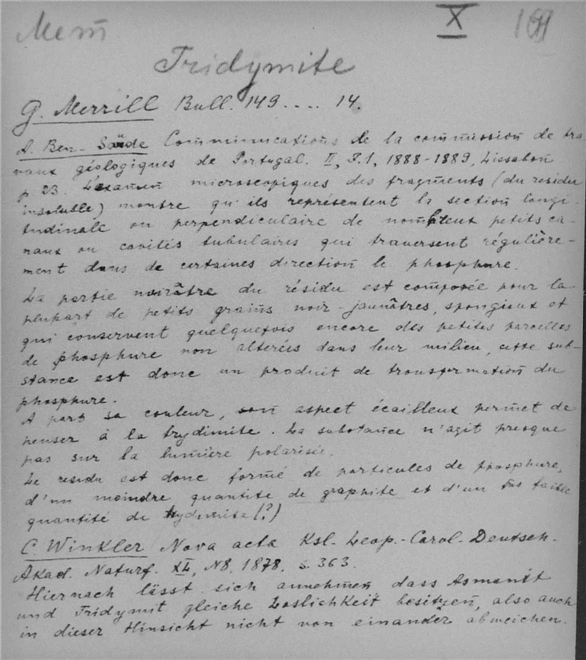 Mem X 161
Tridymite
G. Merrill Bull. 149 .... 14.
A. Ben-Saúde Communications de la commission de tra
vaux géologiques de Portugal. II, F.1, 1888-1889, Lissabon
p. 23. L'examen microscopiques des fragments (du residu
insoluble) montre qu'ils représentent la section longi-
tudinale ou perpendiculaire de nombreux petits ca-
naux ou cavités tubulaires qui traversent réguliére-
ment dans de certaines direction le phosphure.
La partie noirâtre du résidu est composée pour la
plupart de petits grains noir-jaunâtres, spongieux et
qui conservent quelquefois encore des petites parcelles
de phosphure non alterées dans leur milieu, cette sub-
stance est donc un produit de transformation du
phosphure.
A part sa couleur, son aspect écailleux permet de
penser à la trydimite. La substance n'agit presque
pas sur la lumière polarisée.
Le residu est donc formé de particules de phosphure,
d'un moindre quantite de graphite et d'un faible
quantité de trydimite (?)
C. Winkler Nova acta Ksl. Leop.-Carol. Deutsch.
Akad. Naturf. XL, N8, 1878, s. 363.
Hiernach lässt sich annehmen dass Asmanit
und Tridymit gleiche Loslichkeit besitzen, also auch
in dieser Hinsicht nicht von einander abweichen.